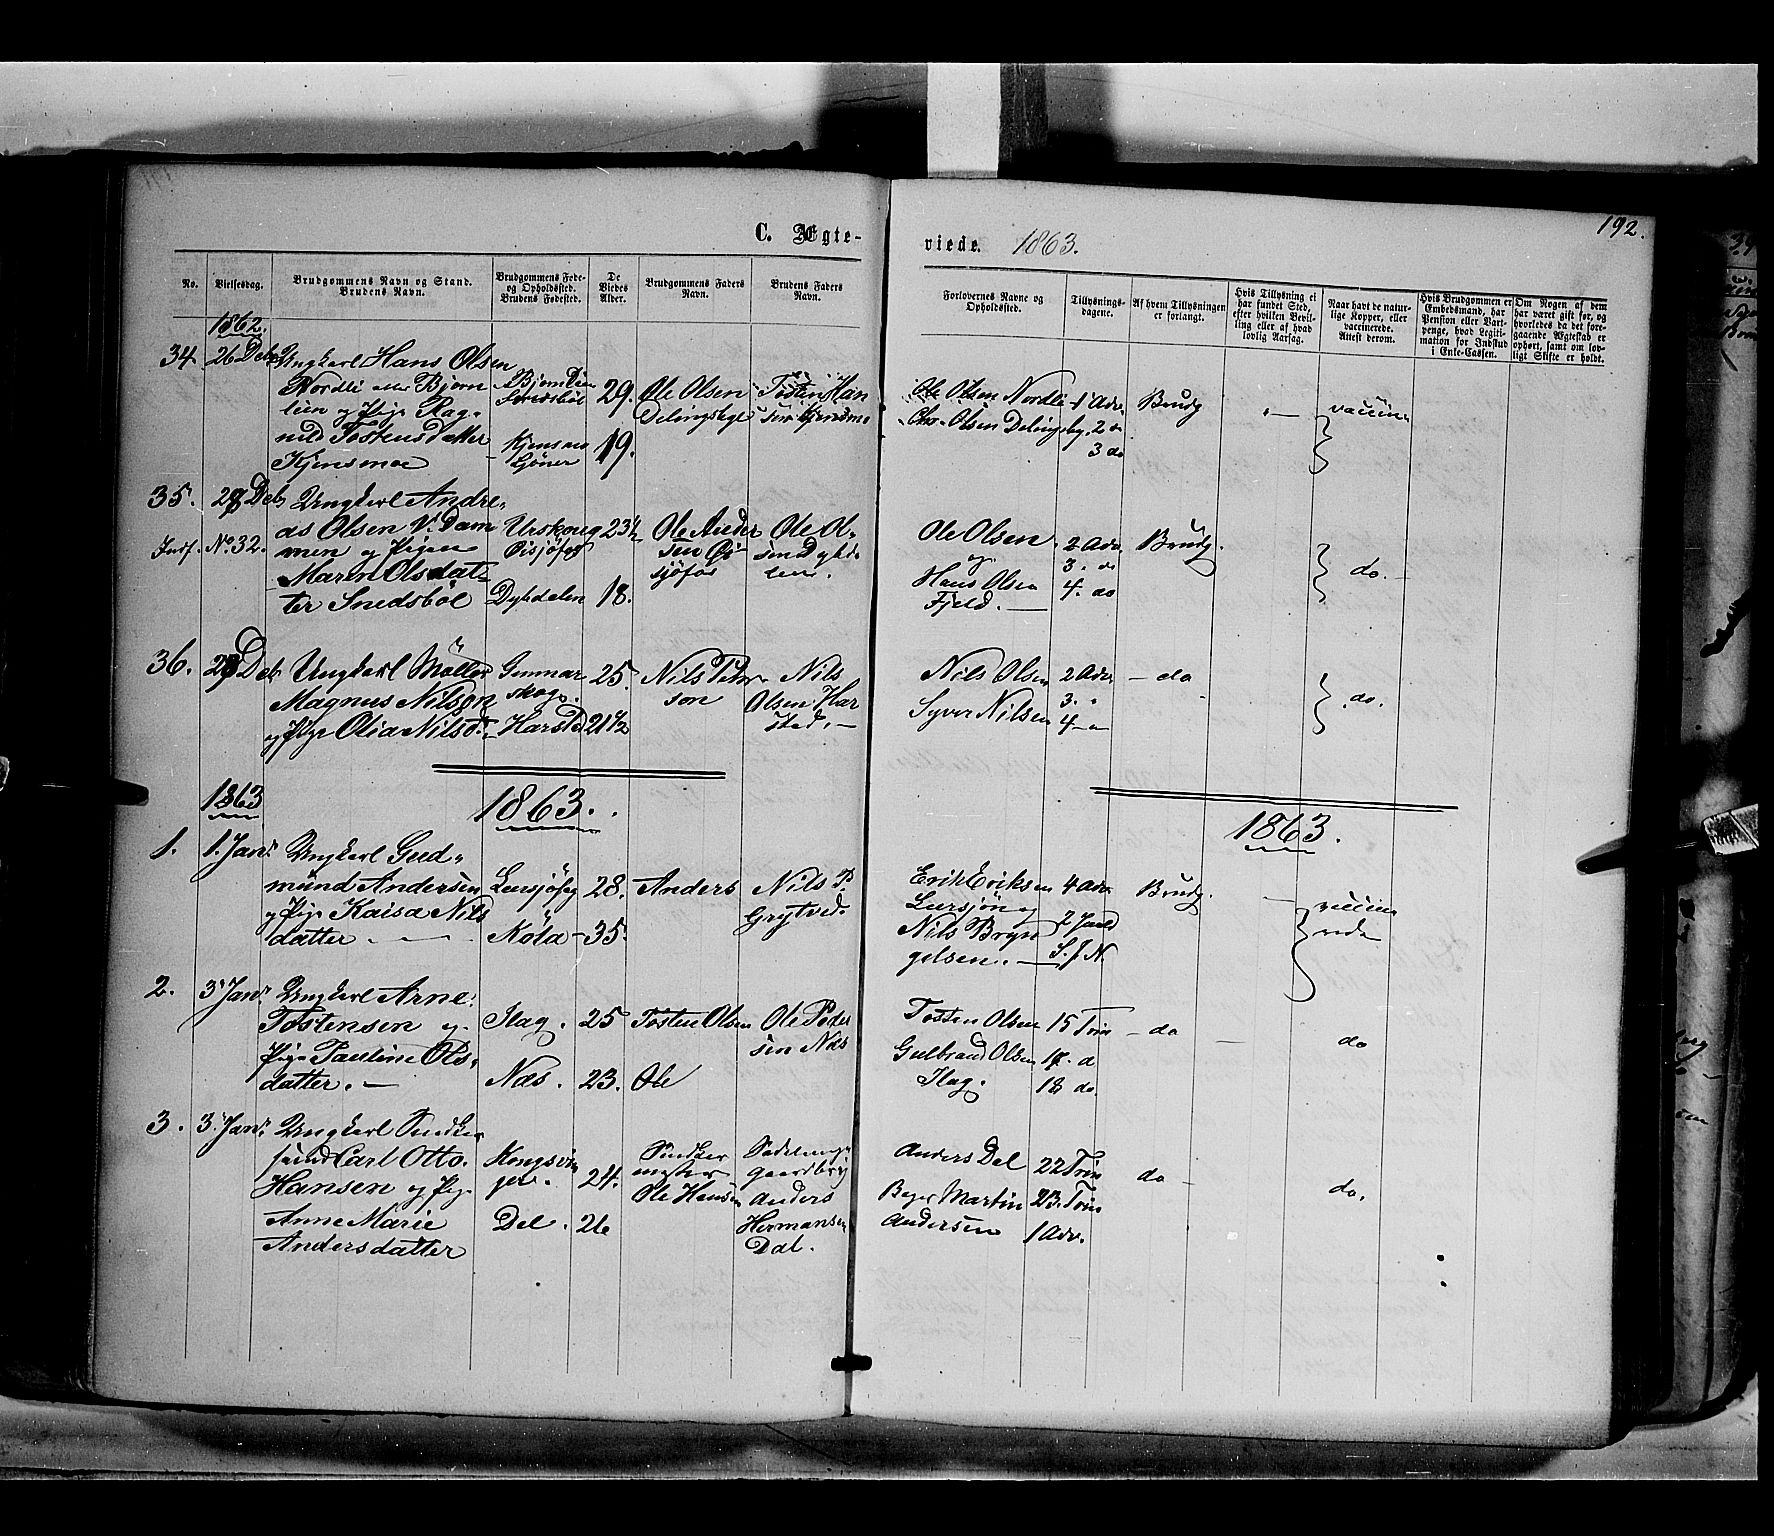 192.
C. Ægte-
viede. 1863.
No.
Vielsesdag.
Brudgommens Navn og Stand.
Brudens Navn.
Brudgommens Føde-
og Opholdssted.
Brudens Fødested.
De
Viedes
Alder.
Brudgommens Faders
Navn.
Brudens Faders
Navn.
Forlovernes Navne og
Opholdssted.
Tillysnings-
dagene.
Af hvem Tillysningen
er forlangt.
Hvis Tillysning ei
har fundet Sted,
efter hvilken Bevil-
ling eller af hvad
lovlig Aarsag.
Naar havt de natur-
lige Kopper, eller
vaccinerede.
Attest derom.
Hvis Brudgommen er
Embedsmand, har
Pension eller Vart-
penge, hvad Legiti-
mation for Indskud
i Enke-Cassen.
Om Nogen af dem
har været gift før, og
hvorledes da det fore-
gaaende Ægteskab er
ophørt, samt om lov-
ligt Skifte er holdt.
1862.
34. 26 Deb
Ungkarl Hans Olsen
Nordli eller Bjørn
lien og Pige Rag-
nild Tostensdatter
Kjensmoe
29.
19.
Ole Olsen
Tosten Han
sen Kjensmo
Ole Olsen Nordli
Olsen
1 Adv.
2 "
3 do
Brudg
vaccine
35. 28 Deb
Indf. No. 32.
Ungkarl Andre-
as Olsen V. Dam
men og Pigen
Maren Olsdat-
ter Snedsböl
Urskoug
Dyhdalen
23½
18.
Ole Ander
sen
sjöfos
Ole Ol-
sen
Ole Olsen
og
Hans Olsen
Fjeld.
2 Adv.
3. do
4. do
Brudg.
do.
36. Deb
Ungkarl Möller
Magnus Nilson
og Pige Olia Nilsd.
Gunnar
skog.
Harstd
25.
21½
Nils Peter
son
Nils
Olsen Har
sted.
Nils Olsen
Syver Nilsen
2 Adv
3. "
4 - "
do
do.
1863
1863.
1863.
1. 1. Jan.
Ungkarl Gud-
mund Andersen
og Pige Kaisa Nils
datter.
Lersjöfg
Köla
28.
35.
Anders
Nils P.
Grytved.
Erik Eriksen
Lersjön og
Nils Bryn
gelsen.
4 Adv.
2 Juled
S. f N.
Brudg.
vaccine
rede
2. 3 Jan.
Ungkarl Arne
Tostensen og
Pige Pauline Ols-
datter.
Slag.
Næs.
25
23.
Tosten Olsen
Ole
Ole Peder
sen Næs
Tosten Olsen
Gulbrand Olsen
Slag.
15 Trin
17. d
18 do.
do
do
3. 3 Jan.
Ungkarl Snedker
svend Carl Otto
Hansen og Pige
Anne Marie
Andersdatter
Kongsvin
ger.
Dal.
24.
26
Snedker
mester
Ole Hansen
Anders
Hermansen
Dal.
Anders Dal
Bager Martin
Andersen
22 Trin
23. Trin
1 Adv.
do
do.